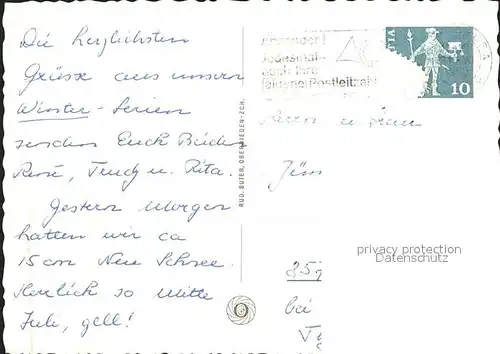 Die herzlichsten
Grüsse aus unseren
Winter-Ferien
senden Euch Beiden
René, Trudy u. Rita.
Gestern Morgen
hatten wir ca
15 cm Neu Schnee.
Herrlich so mitte
Juli, gell!
RUD. SUTER, OBERRIEDEN-ZCH.
Absender!
Jedesmal
auch Ihre
eigene Postleitzahl
10
Herrn u Frau
bei
privacy protection
Datenschutz